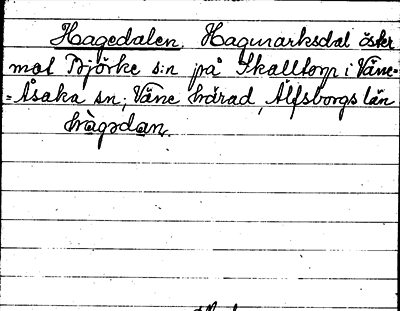 Hagedalen, Hagmarksdal öster
mot Björke s:n på Skalltorp i Väne-
-Åsaka sn, Väne härad, Älfsborgs län
hàgədan.